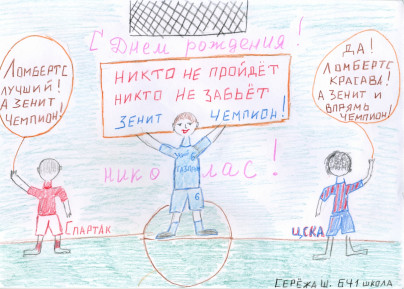 С Днем рождения!
Ломбертс
лучший!
А Зенит
чемпион!
НИКТО НЕ ПРОЙДЁТ
НИКТО НЕ ЗАБЬЁТ
ЗЕНИТ ЧЕМПИОН!
ДА!
Ломбертс
КРАСАВА!
А Зенит и
впрямь
чемпион!
6
НИКОЛАС!
Спартак
6
ЦСКА
СЕРЁЖА Ш. 641 ШКОЛА